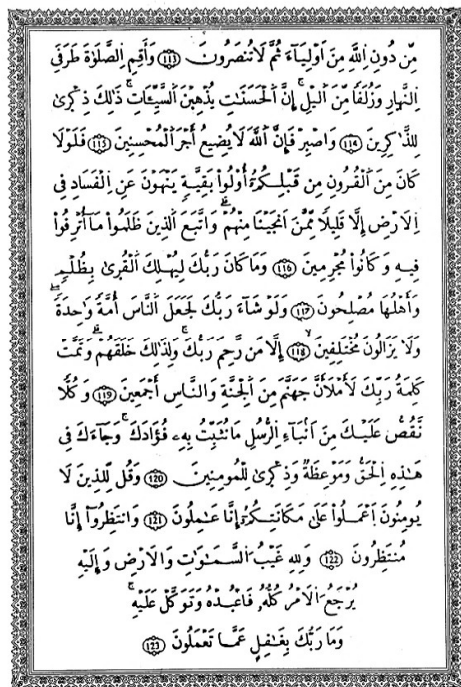 مِّن دُونِ اِ۬للَّهِ مِنَ اَوْلِيَآءَ ثُمَّ لَا تُنصَرُونَ 113 وَأَقِمِ اِ۬لصَّلَوٰةَ طَرَفَىِ
اِ۬لنَّهَارِ وَزُلَفاً مِّنَ اَ۬ليْلِ إِنَّ اَ۬لْحَسَنَٰتِ يُذْهِبْنَ اَ۬لسَّيِّـَٔاتِ ذَٰلِكَ ذِكْرَىٰ
لِلذَّٰكِرِينَ 114 وَاصْبِرْ فَإِنَّ اَ۬للَّهَ لَا يُضِيعُ أَجْرَ اَ۬لْمُحْسِنِينَ 115 فَلَوْلَا
كَانَ مِنَ اَ۬لْقُرُونِ مِن قَبْلِكُمُۥٓ أُوْلُواْ بَقِيَّةٍ يَنْهَوْنَ عَنِ اِ۬لْفَسَادِ فِى
اِ۬لَارْضِ إِلَّا قَلِيلًا مِّمَّنَ اَنجَيْنَا مِنْهُمْ وَاتَّبَعَ اَ۬لذِينَ ظَلَمُواْ مَآ أُتْرِفُواْ
فِيهِ وَكَانُواْ مُجْرِمِينَ 116 وَمَا كَانَ رَبُّكَ لِيُهْلِكَ اَ۬لْقُرَىٰ بِظُلْمٍ
وَأَهْلُهَا مُصْلِحُونَ 117 وَلَوْ شَآءَ رَبُّكَ لَجَعَلَ اَ۬لنَّاسَ أُمَّةً وَٰحِدَةً
وَلَا يَزَالُونَ مُخْتَلِفِينَ 118 إِلَّا مَن رَّحِمَ رَبُّكَ وَلِذَٰلِكَ خَلَقَهُمْ وَتَمَّتْ
كَلِمَةُ رَبِّكَ لَأَمْلَأَنَّ جَهَنَّمَ مِنَ اَ۬لْجِنَّةِ وَالنَّاسِ أَجْمَعِينَ 119 وَكُلًّا
نَّقُصُّ عَلَيْكَ مِنَ اَنۢبَآءِ اِ۬لرُّسُلِ مَا نُثَبِّتُ بِهِۦ فُؤَادَكَ وَجَآءَكَ فِى
هَٰذِهِ اِ۬لْحَقُّ وَمَوْعِظَةٌ وَذِكْرَىٰ لِلْمُومِنِينَ 120 وَقُل لِّلذِينَ لَا
يُومِنُونَ اَ۪عْمَلُواْ عَلَىٰ مَكَانَتِكُمُۥٓ إِنَّا عَٰمِلُونَ 121 وَانتَظِرُوٓاْ إِنَّا
مُنتَظِرُونَ 122 وَلِلهِ غَيْبُ اُ۬لسَّمَٰوَٰتِ وَالَارْضِ وَإِلَيْهِ
يُرْجَعُ اُ۬لَامْرُ كُلُّهُۥ فَاعْبُدْهُ وَتَوَكَّلْ عَلَيْهِ
وَمَا رَبُّكَ بِغَٰفِلٍ عَمَّا تَعْمَلُونَ 123